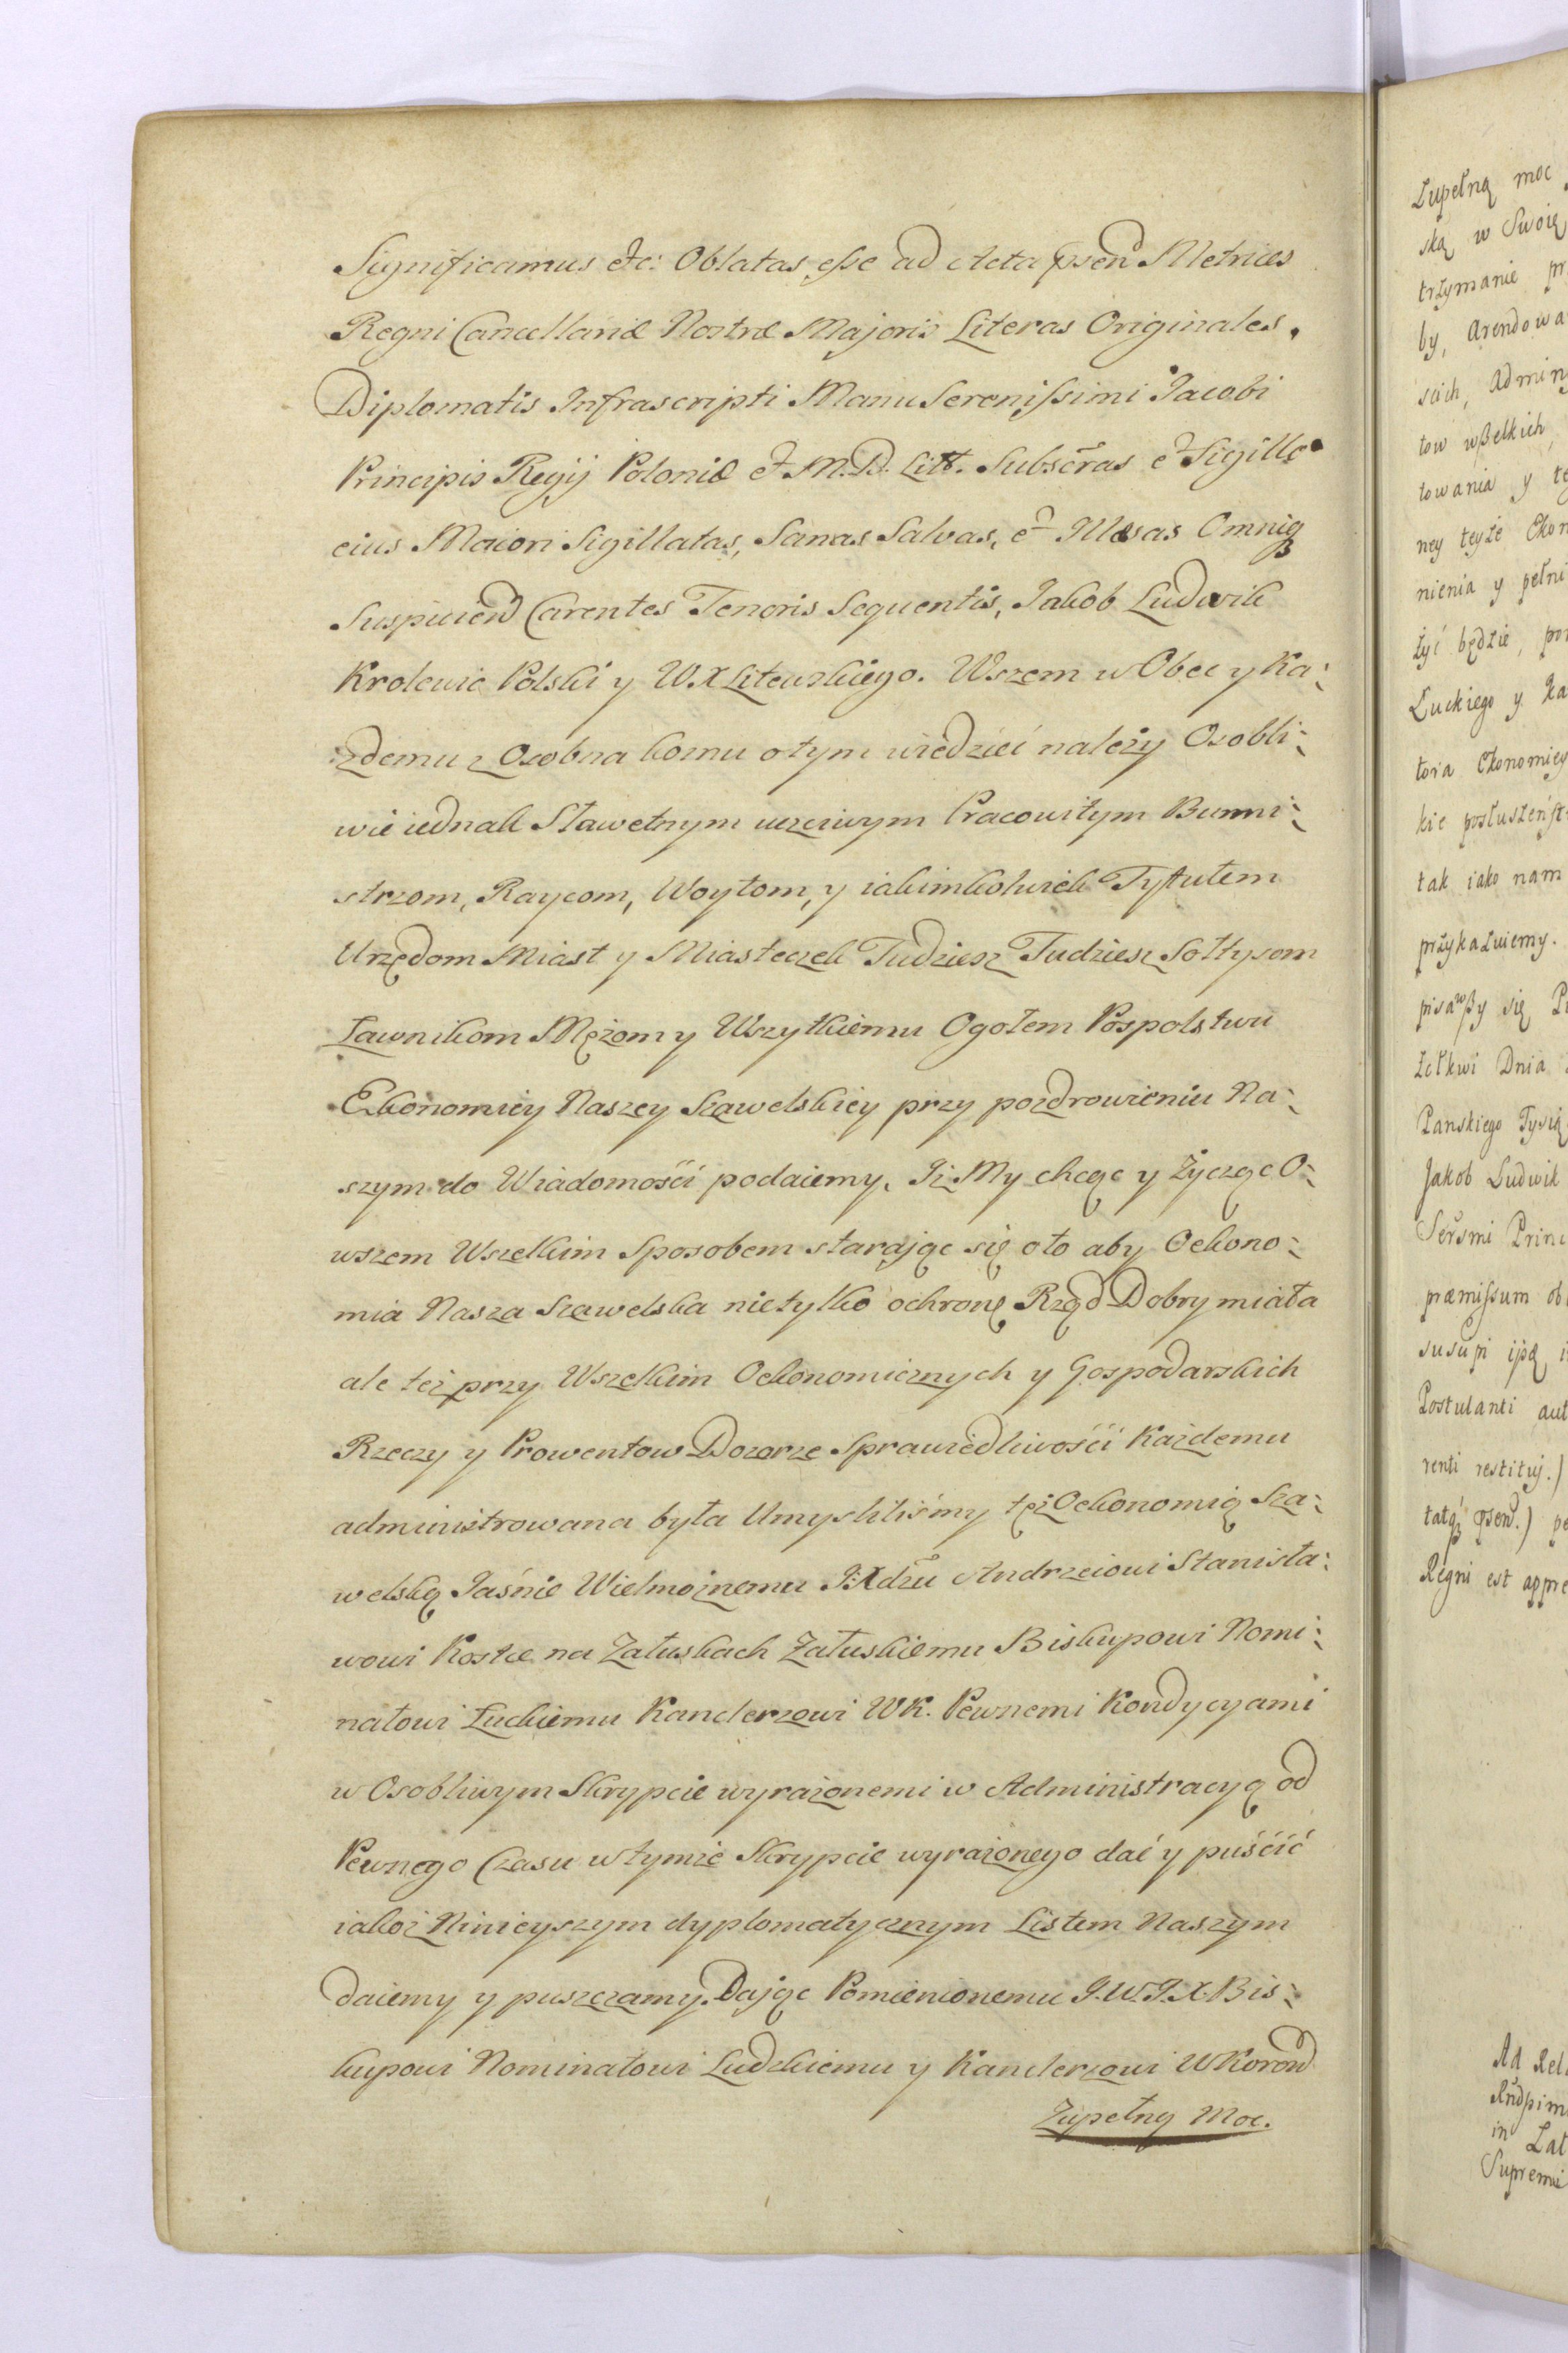 Significamus etc: Oblatas eſse ad Acta pñsen Metrices
Regni Cancellariæ Nostræ Majoris Literas Originales.
Diplomatis Infrascripti Manu Sereniſsimi Jacobi
Principis Regij Poloniæ et M.D. Litt. Subscras et Sigillo
eius Maiori Sigillatas, Sanas Salvas, et Illæsas Omniq
Suspicien Carentes Tenoris Sequentis, Jakob Ludwik
Krolewic Polski y W.X Litewskiego. Wszem w Obec y Ka:
zdemu z Osobna komu otym wiedzieć należy Osobli:
wie iednak Sławetnym uczciwym Pracowitym Burmi:
strzom, Raycom, Woytom, y iakimkolwiek Tytułem
Urzędom Miast y Miasteczek Tudziesz Tudziesz Sołtysom
Ławnikom Mężom y Wszytkiemu Ogołem Pospolstwu
Ekonomiey Naszey Szawelskiey przy pozdrowieniu Na:
szym do Wiadomości podaiemy, Iż My chcąc y Życząc O:
wszem Wszelkim Sposobem starając się oto aby Oekono:
mia Nasza Szawelska nietylko ochronę Rząd Dobry miała
ale też przy Wszelkim Oekonomicznych y Gospodarskich
Rzeczy y Prowentow Dozorze Sprawiedliwości Każdemu
administrowana była Umyśliliśmy tęż Oekonomią Sza:
welską Jaśnie Wielmożnemu JXdzu Andrzeiowi Stanisła:
wowi Kostce na Załuskach Załuskiemu Biskupowi Nomi:
natowi Łuckiemu Kanclerzowi WK. Pewnemi Kondycyami
w Osobliwym Skrypcie wyrażonemi w Administracyą od
Pewnego Czasu wtymże Skrypcie wyrażonego dać y puścić
iakoż Ninieyszym dyplomatycznym Listem Naszym
daiemy y puszczamy. Dając Pomienionemu J.W.J.X. Bis:
kupowi Nominatowi Ludzkiemu y Kanclerzowi WKoron
Zupełną Moc.
Zupełną moc
ską w Swoię
trzymanie pr
by, Arendowa
scich, Admin
tow wßelkich
towania y te
ney teyże Ekon
nienia y pełni
żyć będzie, po
Łuckiego y Ka
tora Ekonomiey
kie posłuszeńst
tak iako nam
przykazuiemy.
pisawßy się P
Żołkwi Dnia
Panskiego Tysią
Jakob Ludwik
Sersmi Princ
præmiſsum ob
Postulanti aut
renti restituj.)
Regni est appre
Ad Rel
in Lat
Supremi